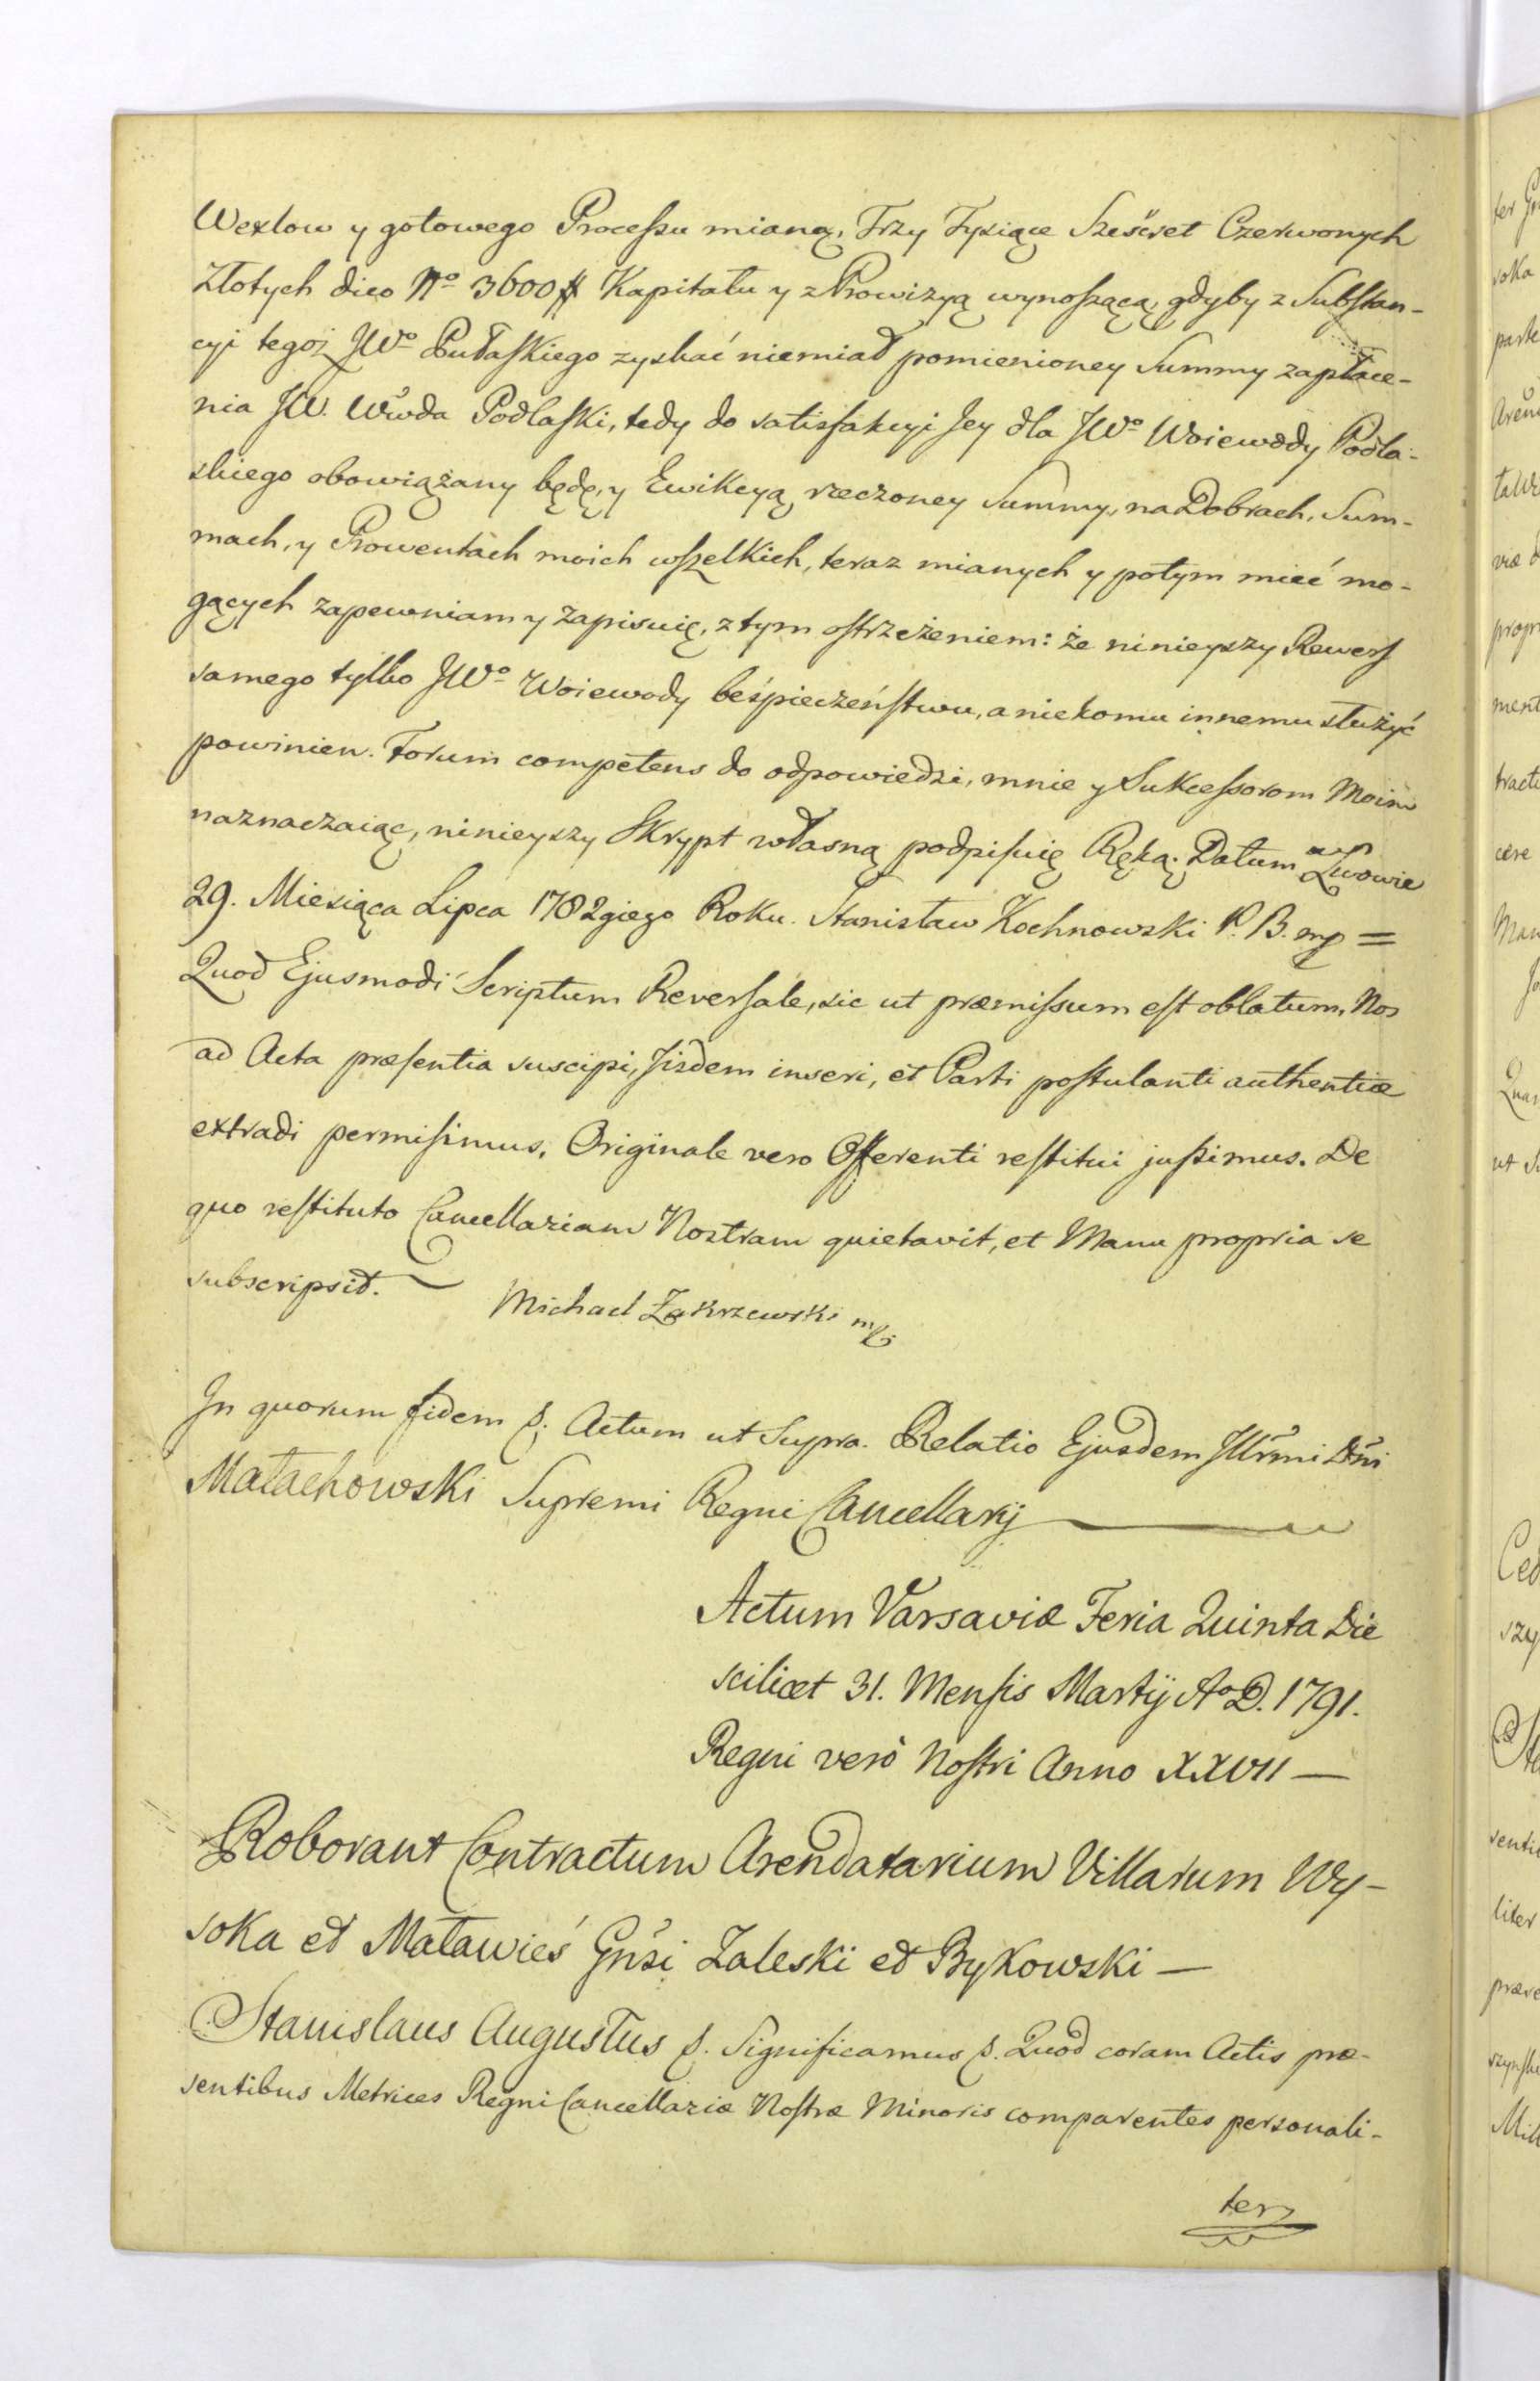 Wexlow y gotowego Processu mianą, Trzy Tysiące Sześćset Czerwonych
Złotych dico No 3600 # Kapitału y z Prowizyą wynoszącą, gdyby z Substan-
cyi tegoż JWo Pułaskiego zyskać niemiał pomienioney Summy zapłace-
nia JW. Wwda Podlaski, tedy do satisfakcyi Jey dla JWo Woiewody Podla-
skiego obowiązany będę, y Ewikcyą rzeczoney Summy, na Dobrach, Sum-
mach, y Prowentach moich wszelkich, teraz mianych y potym mieć mo-
gących zapewniam y zapisuię, z tym ostrzeżeniem: że ninieyszy Rewers
samego tylko JWo Woiewody beśpieczeństwu, a niekomu innemu służyć
powinien. Forum competens do odpowiedzi, mnie y Sukcessorom Moim
naznaczaiąc, ninieyszy Skrypt własną podpisuię Ręką. Datum we Lwowie
29. Miesiąca Lipca 1782giego Roku. Stanisław Kochnowski P. B. mp =
Quod Ejusmodi Scriptum Reversale, sic ut præmissum est oblatum, Nos
ad Acta præsentia suscipi, Jisdem inseri, et Parti postulanti authentice
extradi permisimus, Originale vero Offerenti restitui jussimus. De
quo restituto Cancellariam Nostram quietavit, et Manu propria se
subscripsit. Michael Zakrzewski mp
In quorum fidem p. Actum ut Supra. Relatio Ejusdem Jllrmi Dni
Małachowski Supremi Regni Cancellarij
Actum Varsaviæ Feria Quinta Die
scilicet 31. Mensis Martij Ao D. 1791.
Regni verò Nostri Anno XXVII —
Roborant Contractum Arendatarium Villarum Wy-
soka et Maławieś Gnsi Zaleski et Bykowski —
Stanislaus Augustus p. Significamus p. Quod coram Actis præ-
sentibus Metrices Regni Cancellariæ Nostræ Minoris comparentes personali-
ter